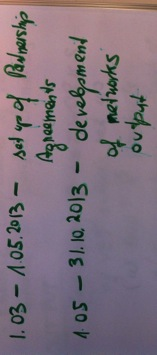 1.03 – 1.05.2013 – set up of Partnership
Agreements
1.05 – 31.10.2013 – development
of networks
output